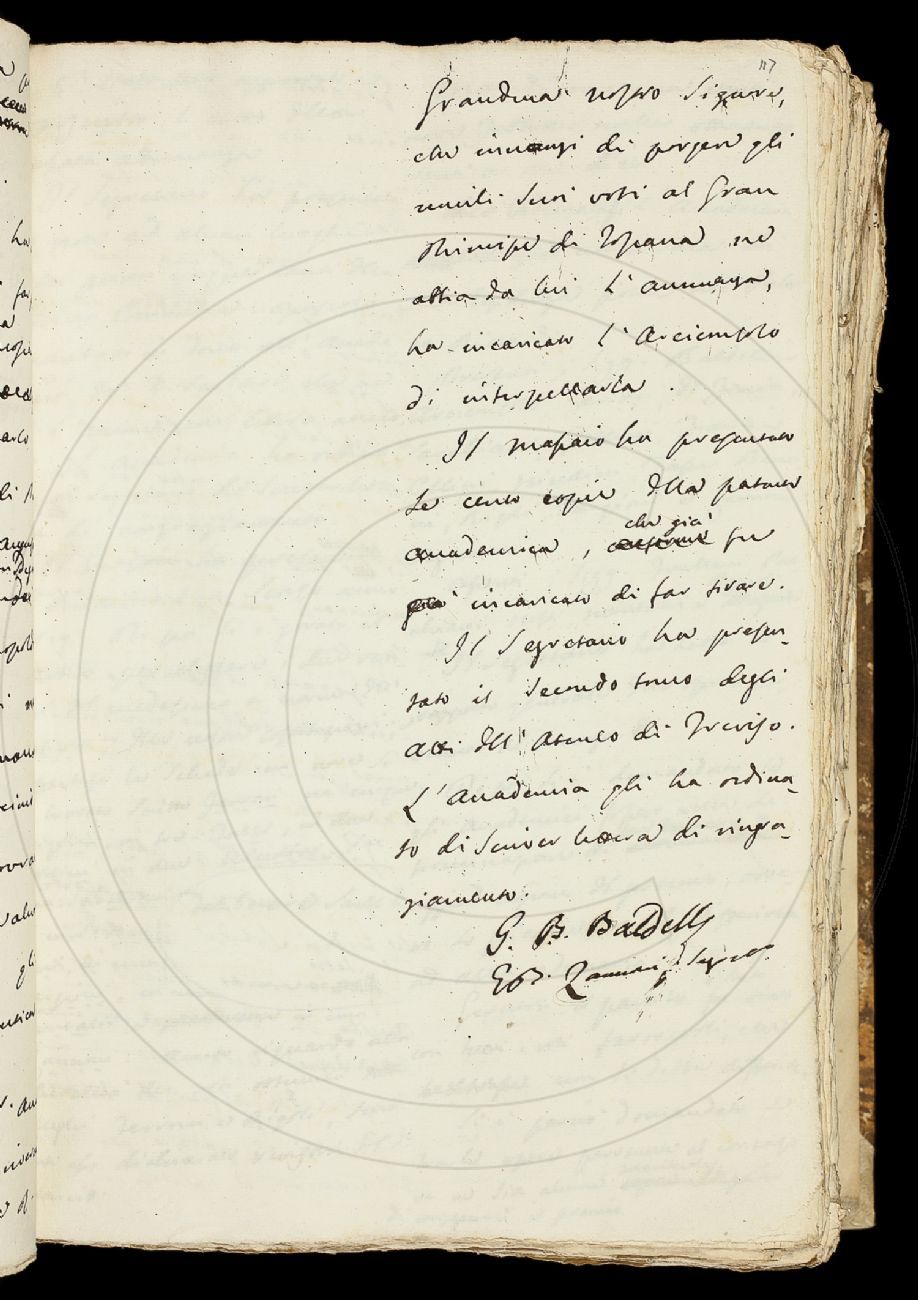 117
Granduca nostro Signore,
che innanzi di porgere gli
umili suoi voti al Gran
Principe di Toscana ne
abbia da lui l'annuenza,
ha incaricato l'Arciconsolo
di interpellarla.
Il Massaio ha presentato
le cento copie della patente
accademica, che già fu
incaricato di far tirare.
Il Segretario ha presen-
tato il secondo tomo degli
Atti dell'Ateneo di Treviso.
L'Accademia gli ha ordina-
to di scriver lettera di ringra-
ziamento.
G. B. Baldelli
Gio. B. Zannoni Segret.o